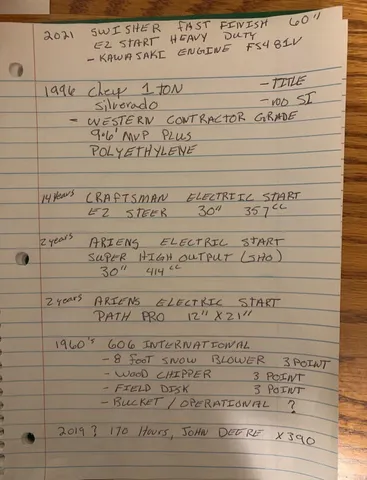 2021 SWISHER FAST FINISH 60"
EZ START HEAVY DUTY
- KAWASAKI ENGINE FS481V
1996 Chevy 1 TON - TITLE
Silverado - no SI
- WESTERN CONTRACTOR GRADE
9.6' MVP PLUS
POLYETHYLENE
14 Years CRAFTSMAN ELECTRIC START
EZ STEER 30" 357cc
2 years ARIENS ELECTRIC START
SUPER HIGH OUTPUT (SHO)
30" 414cc
2 years ARIENS ELECTRIC START
PATH PRO 12" X 21"
1960's 606 INTERNATIONAL
- 8 foot SNOW BLOWER 3 POINT
- WOOD CHIPPER 3 POINT
- FIELD DISK 3 POINT
- BUCKET / OPERATIONAL ?
2019? 170 Hours, JOHN DEERE X390